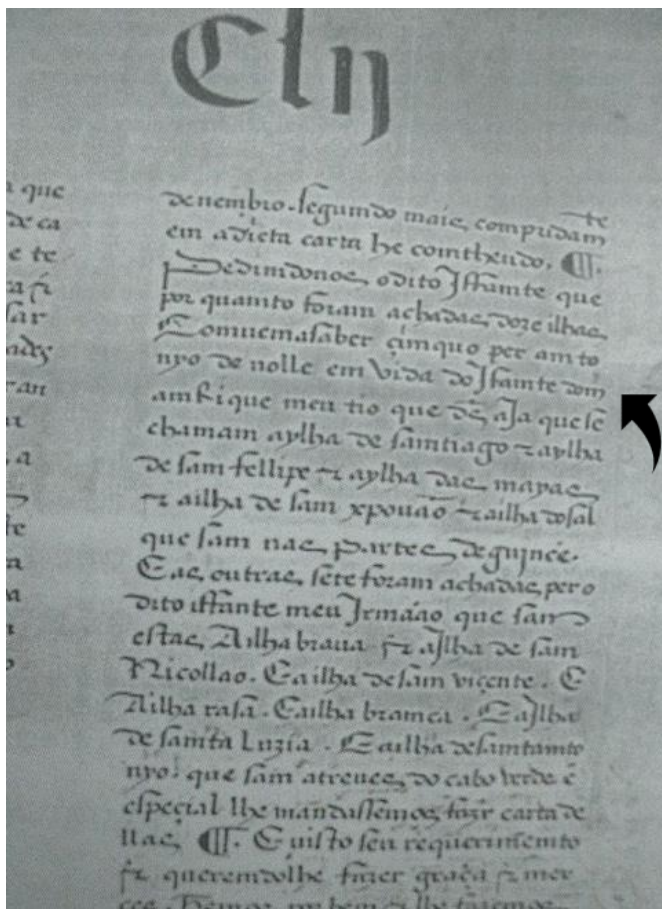 Clij
que
de ca
e te
sar
ran
a
te
denembro. segumdo mais compridam
te
em adicta carta he comtheudo. ¶.
Pedimdonos odito Iffamte que
por quamto foram achadas doze ilhas
Comuemasaber çimquo per amto
nyo de nolle em vida do Iffamte dom
amRique meu tio que ds aJa que se
chamam aylha de samtiago ⁊ aylha
de sam fellipe ⁊ aylha das mayas
⁊ ailha de sam xpouão ⁊ ailha dosal
que sam nas partes deguinee.
Eas outras sete foram achadas pero
dito iffante meu Irmãao que sam
estas, Ailha braua ⁊ aJlha de sam
Nicollao. Eailha desam viçente. E
Ailha rasa. Eailha bramca. EaJlha
de samta Luzia. Eailha desamtamto
nyo. que sam atreues do cabo verde ẽ
espeçial lhe mandassemos fazer carta de
llas ¶. E visto seu requerimemto
⁊ queremdolhe fazer graça ⁊ mer
cee. Temos por bem ⁊ lhe fazemos